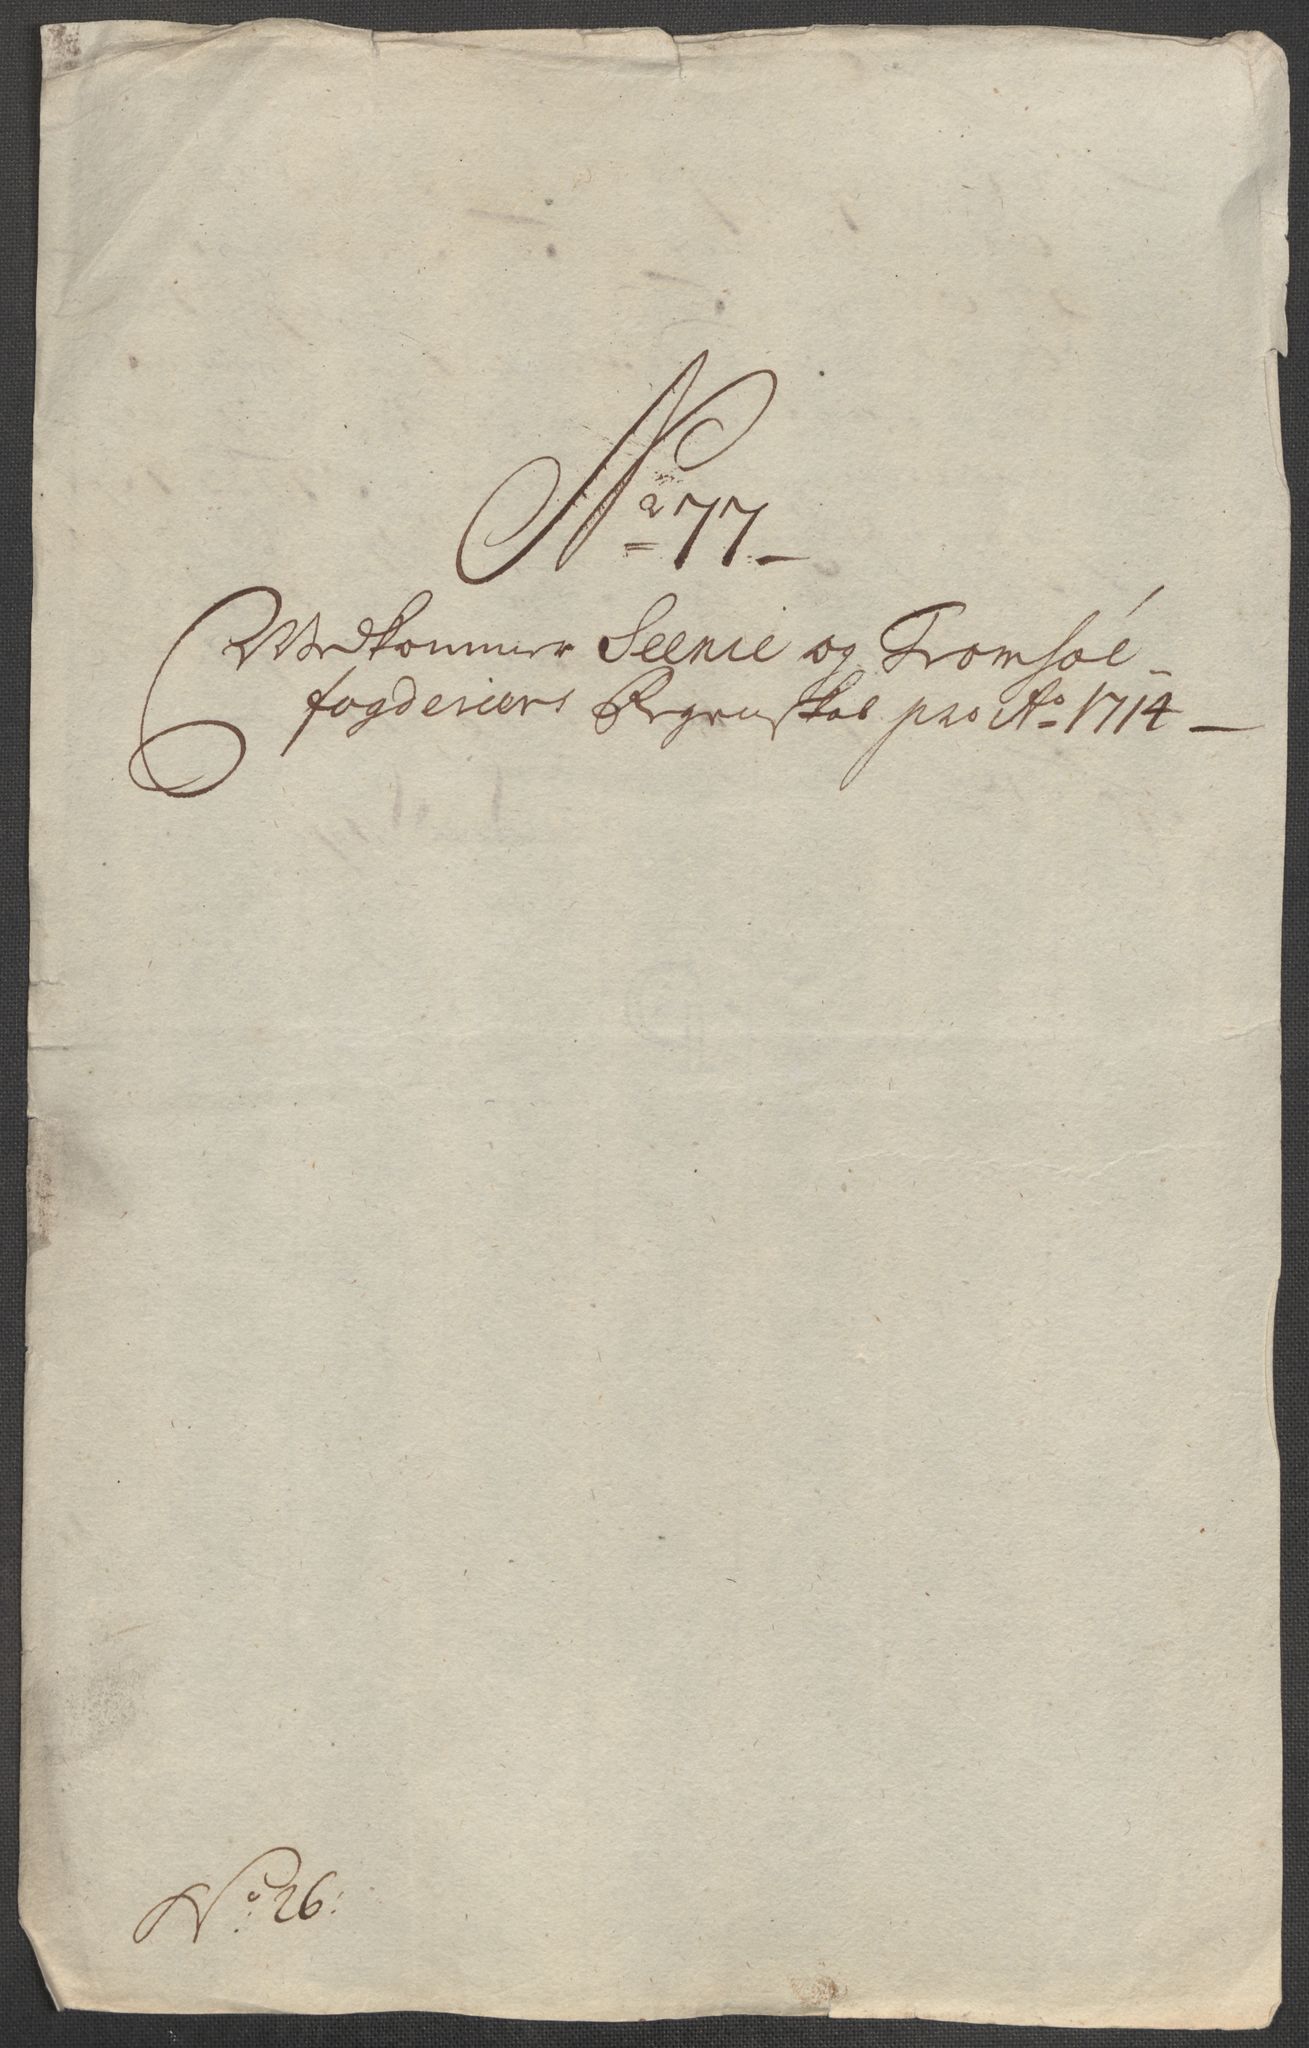 No 77
Vedkommer Seenie og Tromsøe
fogderiers Regenskab pro Ao 1714
No 26: